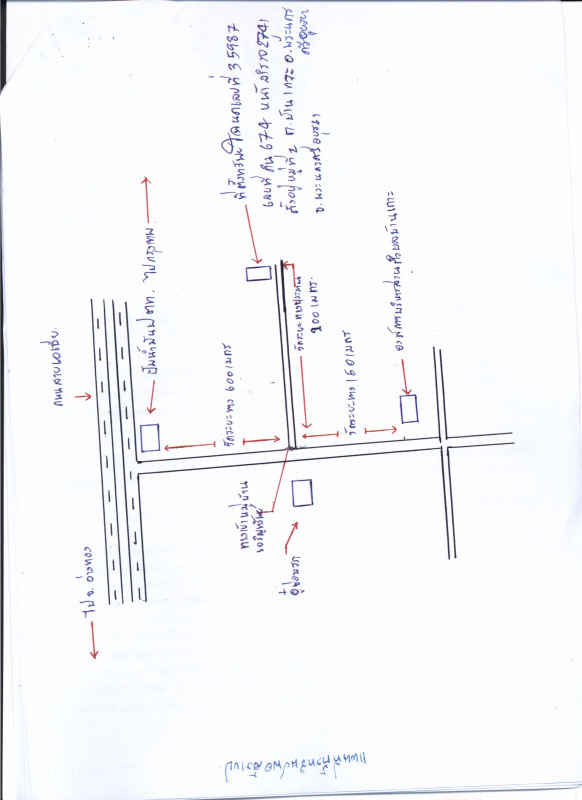 ที่ตั้งทรัพย์ โฉนดเลขที่ 35987
เลขที่ดิน 674 หน้าสำรวจ 2741
ตั้งอยู่ หมู่ที่ 2 ต.บ้านเกาะ อ.พระนคร
ศรีอยุธยา
จ.พระนครศรีอยุธยา
ไปกรุงเทพ
ปั๊มน้ำมัน ปตท.
ถนนสายเอเชีย
ไป จ.อ่างทอง
วัดระยะทาง 600 เมตร
วัดระยะทางประมาณ
200 เมตร.
วัดระยะทาง 160 เมตร
องค์การบริหารส่วนตำบลบ้านเกาะ
ทางเข้าหมู่บ้าน
อู่ซ่อมรถ